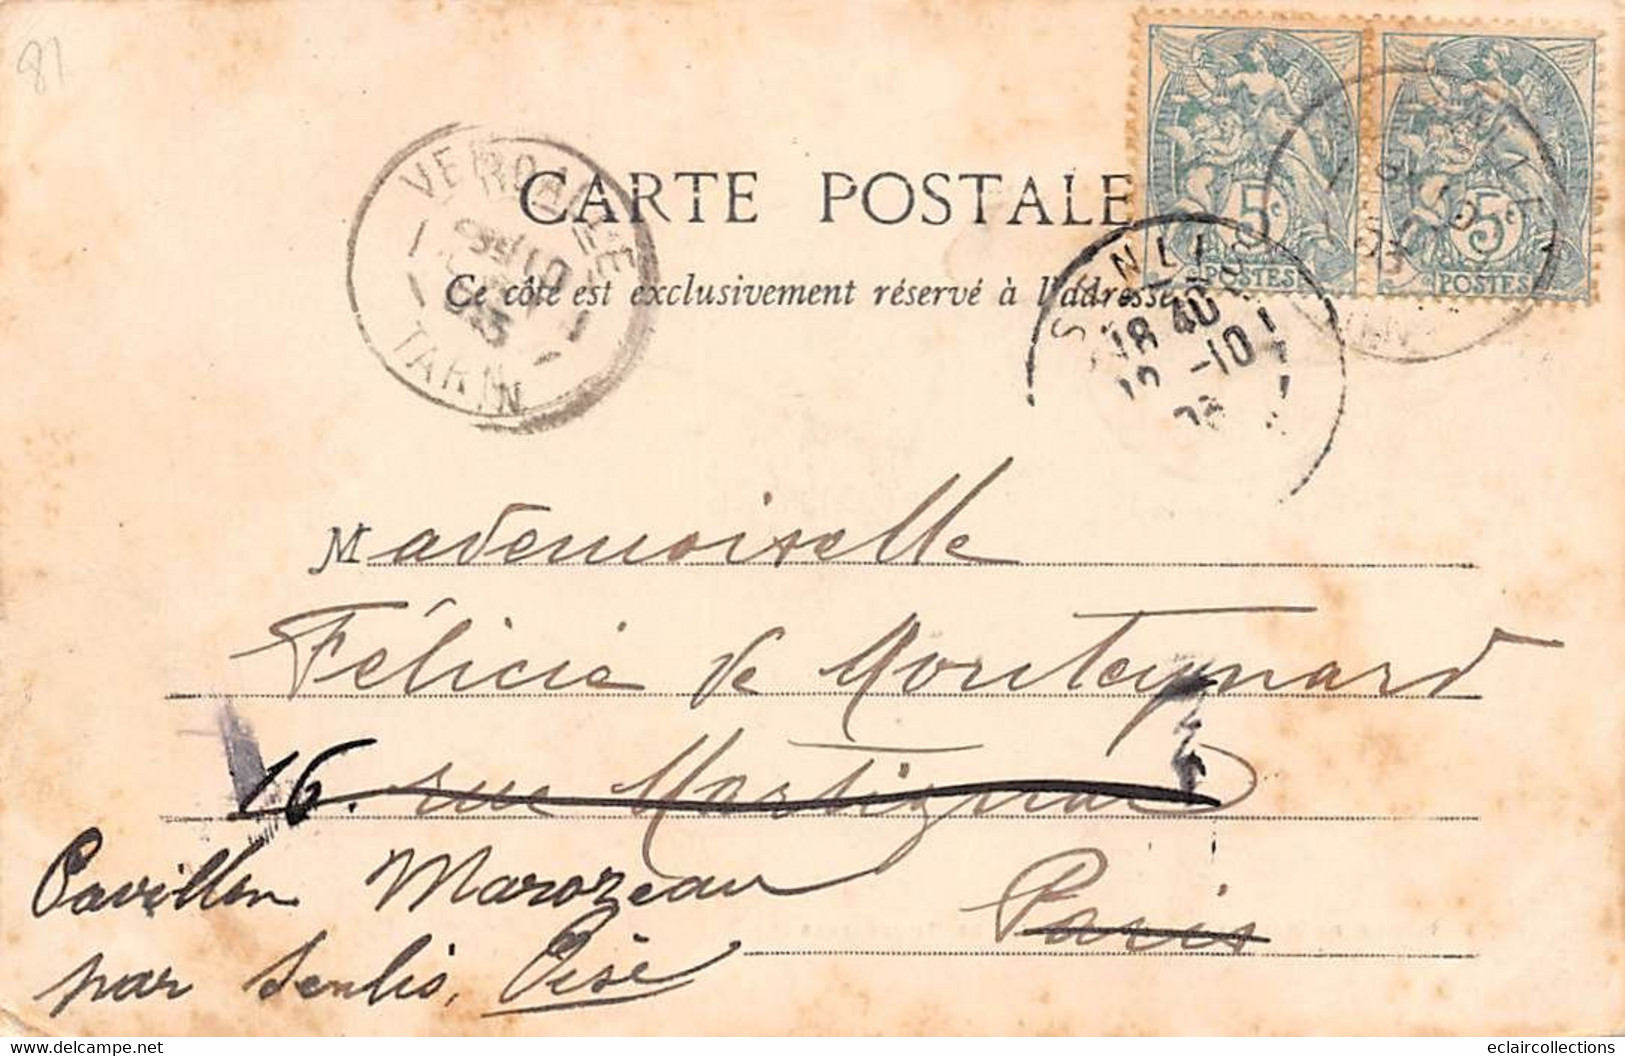 81
VERDALLE
TARN
CARTE POSTALE
Ce côté est exclusivement réservé à l'adresse
5c 5c
POSTES POSTES
SENLIS
18 40
12 -10
03
Mademoiselle
Félicie de Monteynard
16. rue Martignac
Paris
Pavillon Marozeau
par Senlis, Oise
eclaircollections